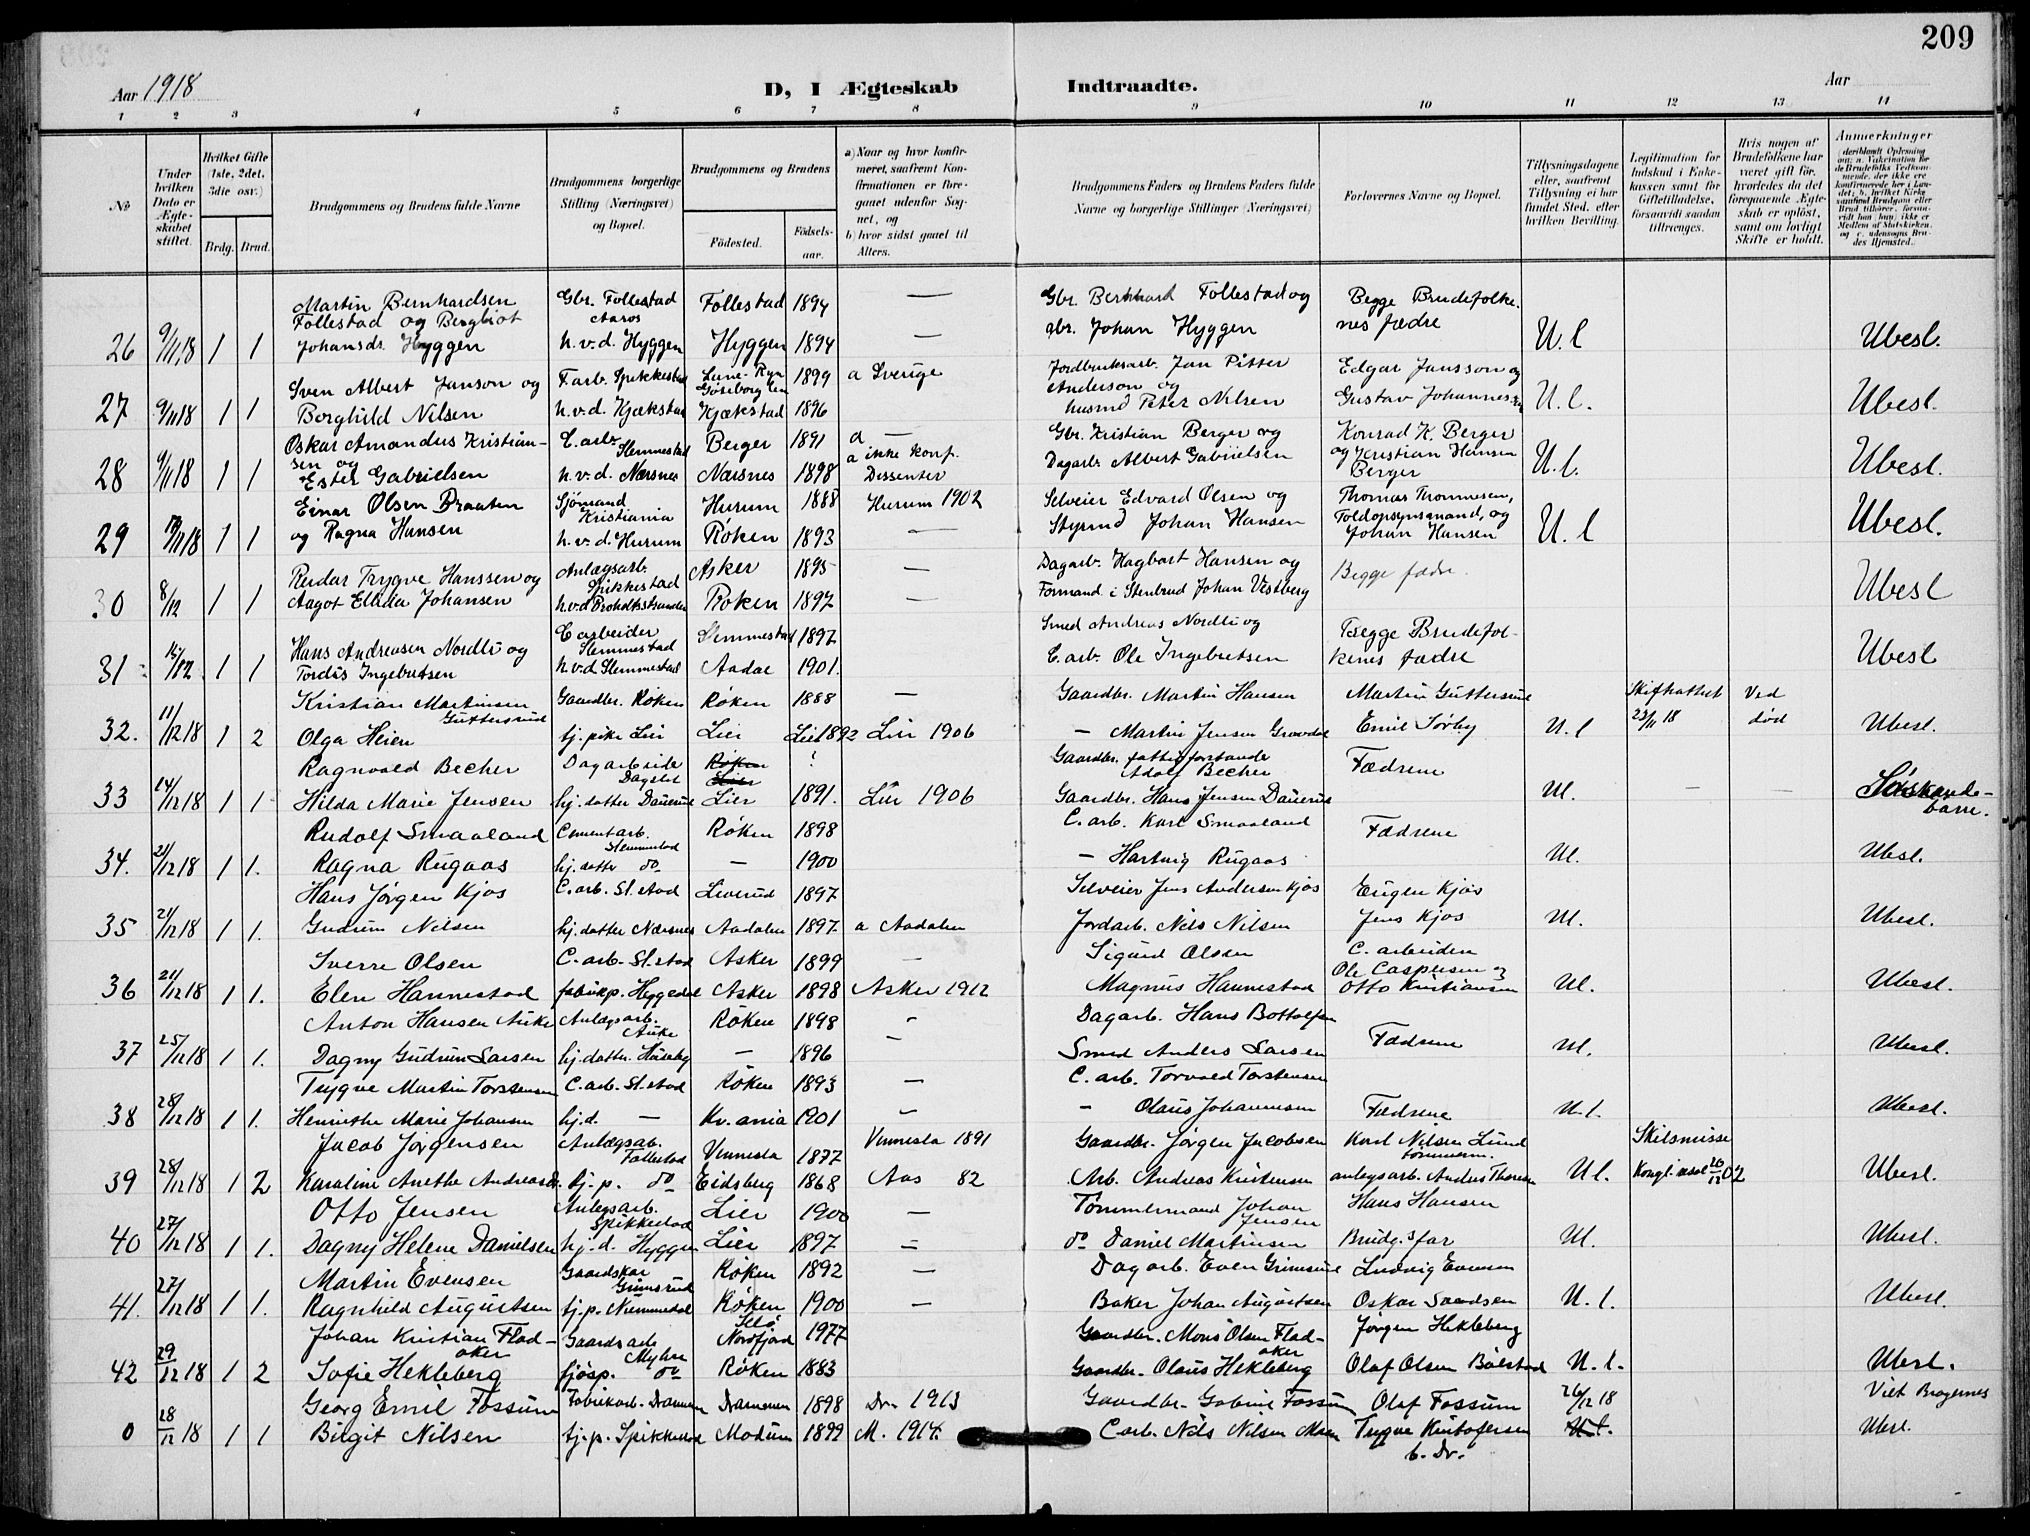 209
Aar 1918
D, I Ægteskab Indtraadte.
Aar
1 2 3 4 5 6 7 8 9 10 11 12 13 14
No
Under hvilken Dato er Ægteskabet stiftet.
Hvilket Gifte (1ste, 2det, 3die osv.)
Brdg. Brud.
Brudgommens og Brudens fulde Navne
Brudgommens borgerlige Stilling (Næringsvei) og Bopæl.
Brudgommens og Brudens
Fødested. Fødselsaar.
a) Naar og hvor konfirmeret, saafremt Konfirmationen er foregaaet udenfor Sognet, og
b) hvor sidst gaaet til Alters.
Brudgommens Faders og Brudens Faders fulde Navne og borgerlige Stillinger (Næringsvei)
Forlovernes Navne og Bopæl.
Tillysningsdagene eller, saafremt Tillysning ei har fundet Sted, efter hvilken Bevilling.
Legitimation for Indskud i Enkekassen samt for Giftetilladelse, forsaavidt saadan tiltrænges.
Hvis nogen af Brudefolkene har været gift før, hvorledes da det foregaaende Ægteskab er opløst, samt om lovligt Skifte er holdt.
Anmerkninger
Martin Bernhardsen Gbr. Follestad Follestad 1894 — Gbr. Bernhard Follestad og Begge Brudefolke-
Follestad og Bergliot Aaros
26 9/11 18 1 1 Johansdr. Hyggen h.v.d. Hyggen Hyggen 1894 — gbr. Johan Hyggen nes fædre U.l Ubesl.
Sven Albert Janson og F.arb. Spikkestad 1899 a Sverige Jordbruksarb. Jan Pitter Edgar Jansson og
Anderson og
27 9/11 18 1 1 Borghild Nilsen h.v.d. Kjækstad Kjækstad 1896 husmd Peter Nilsen Gustav Johannesen U.l. Ubesl.
Oskar Amandus Kristian- C.arb. Slemmestad Berger 1891 a — Gbr. Kristian Berger og Konrad K. Berger
sen og a ikke konf. og Kristian Hansen
28 9/11 18 1 1 Ester Gabrielsen h.v.d. Nærsnes Nærsnes 1898 Dissenter Dagarb. Albert Gabrielsen Berger U.l. Ubesl.
Einar Olsen Braaten Sjømand Kristiania Hurum 1888 Hurum 1902 Selveier Edvard Olsen og Thomas Thommesen,
Toldopsynsmand, og
29 1 1 og Ragna Hansen h.v.d. Hurum Røken 1893 — Styrmd Johan Hansen Johan Hansen U.l Ubesl.
Reidar Trygve Hanssen og Anlægsarb. Spikkestad Asker 1895 — Dagarb. Hagbart Hansen og Begge fædre.
30 8/12 1 1 Aagot Elida Johansen Røken 1897 — Formand i Stenbrud Johan Vestberg Ubesl
Hans Andreassen Nordli og C arbeider Slemmestad Slemmestad 1897 Smed Andreas Nordli og Begge Brudefol-
31 15/12 1 1 Tordis Ingebretsen h.v.d. Slemmestad Aadal 1901. C.arb. Ole Ingebretsen kenes fædre Ubesl
Kristian Martinsen Guttersrud Gaardbr. Røken Røken 1888 — Gaardbr. Martin Hansen Martin Guttersrud Skifteattest Ved
32. 11/12 18 1 2 Olga Heien tj. pike Lier Lier Lier 1892 Lier 1906 — Martin Jensen Emil Sørby U.l 23/11 18 død Ubesl.
Ragnvald Becher Dagarbeide Røken ? Gaardbr. fattigforstander Adolf Becher Fædrene
33 14/12 18 1 1 Hilda Marie Jensen hj. datter Lier 1891. Lier 1906 Gaardbr. Hans Jensen Ul. — — Søskende-
barn.
Rudolf Smaaland Cementarb. Slemmestad Røken 1898 C. arb. Karl Smaaland Fædrene
34. 21/12 18 1 1. Ragna Rugaas hj. datter do — 1900 — Hartvig Rugaas Ul. Ubesl.
Hans Jørgen Kjos C. arb. Sl.stad Liverud 1897 Selveier Jens Andersen Kjos Eugen Kjos
35 21/12 18 1 1. Gudrun Nilsen hj. datter Nærsnes Aadalen 1897 a Aadalen Jordarb. Nils Nilsen Jens Kjos Ul. Ubesl.
Sverre Olsen C. arb. Sl.stad Asker 1899 — Sigurd Olsen C. arbeiden
Ole Caspersen og
36 21/12 18 1 1. Elen Hannestad fabrikp. Heggedal Asker 1898 Asker 1912 Magnus Hannestad Otto Kristiansen Ul. Ubesl.
Anton Hansen Auke Anlægsarb. Auke Røken 1898 — Dagarb. Hans Bottolfsen
37 25/12 18 1 1. Dagny Gudrun Larsen hj. datter. — 1896 — Smed Anders Larsen Fædrene Ul. Ubesl.
Trygve Martin Torstensen C. arb. Sl.stad Røken 1893 — C. arb. Torvald Torstensen
38 28/12 18 1 1. Henriette Marie Johansen hj.d. — Kr.ania 1901 — — Olaus Johannesen Fædrene U.l. Ubesl.
Jacob Jørgensen Anlægsab. Follestad Vennesla 1877 Vennesla 1891 Gaardbr. Jørgen Jacobsen Karl Nilsen Lund Skilsmisse
39 28/12 18 1 2 Karoline Anethe Andreasd. tj.p. do Eidsberg 1868 Aas 82 Arb. Andreas Kristensen anlegsarb. Anders Ul. Ubesl.
Otto Jensen Anlegsarb. Spikkestad Lier 1900 — Tømmermand Johan Jensen Hans Hansen
40 27/12 18 1 1. Dagny Helene Danielsen hj.d. Hyggen Lier 1897 — do Daniel Martinsen Brudg.s far Ul. Ubesl.
Martin Evensen Gaardskar Grimsrud Røken 1892 — Dagarb. Even Grimsrud Ludvig Evensen
41. 27/12 18 1 1. Ragnhild Augustsen tj.p. Nummedal Røken 1900 — Baker Johan Augustsen Oskar U.l. Ubesl.
Johan Kristian Flad- oker Gaardsarb. Myhre Nordfjord 1977 Gaardbr. Mons Olsen Flad- oker Jørgen Hekleberg
42 29/12 18 1 2 Sofie Hekleberg do Røken 1883 Gaardbr. Olaus Hekleberg Olaf Olsen Bølstad U.l. Ubesl.
Georg Emil Fossum Fabrikarb. Drammen Drammen 1898 Dr. 1913 Gaardbr. Fossum Olaf Fossum 26/12 18 Viet Bragernes
0 28/12 18 1 1 Birgit Nilsen tj.p. Spikkestad Modum 1899 M. 1914. C arb. Nils Nilsen Trygve Kristofersen U.l. Ubesl.
b. Dr.